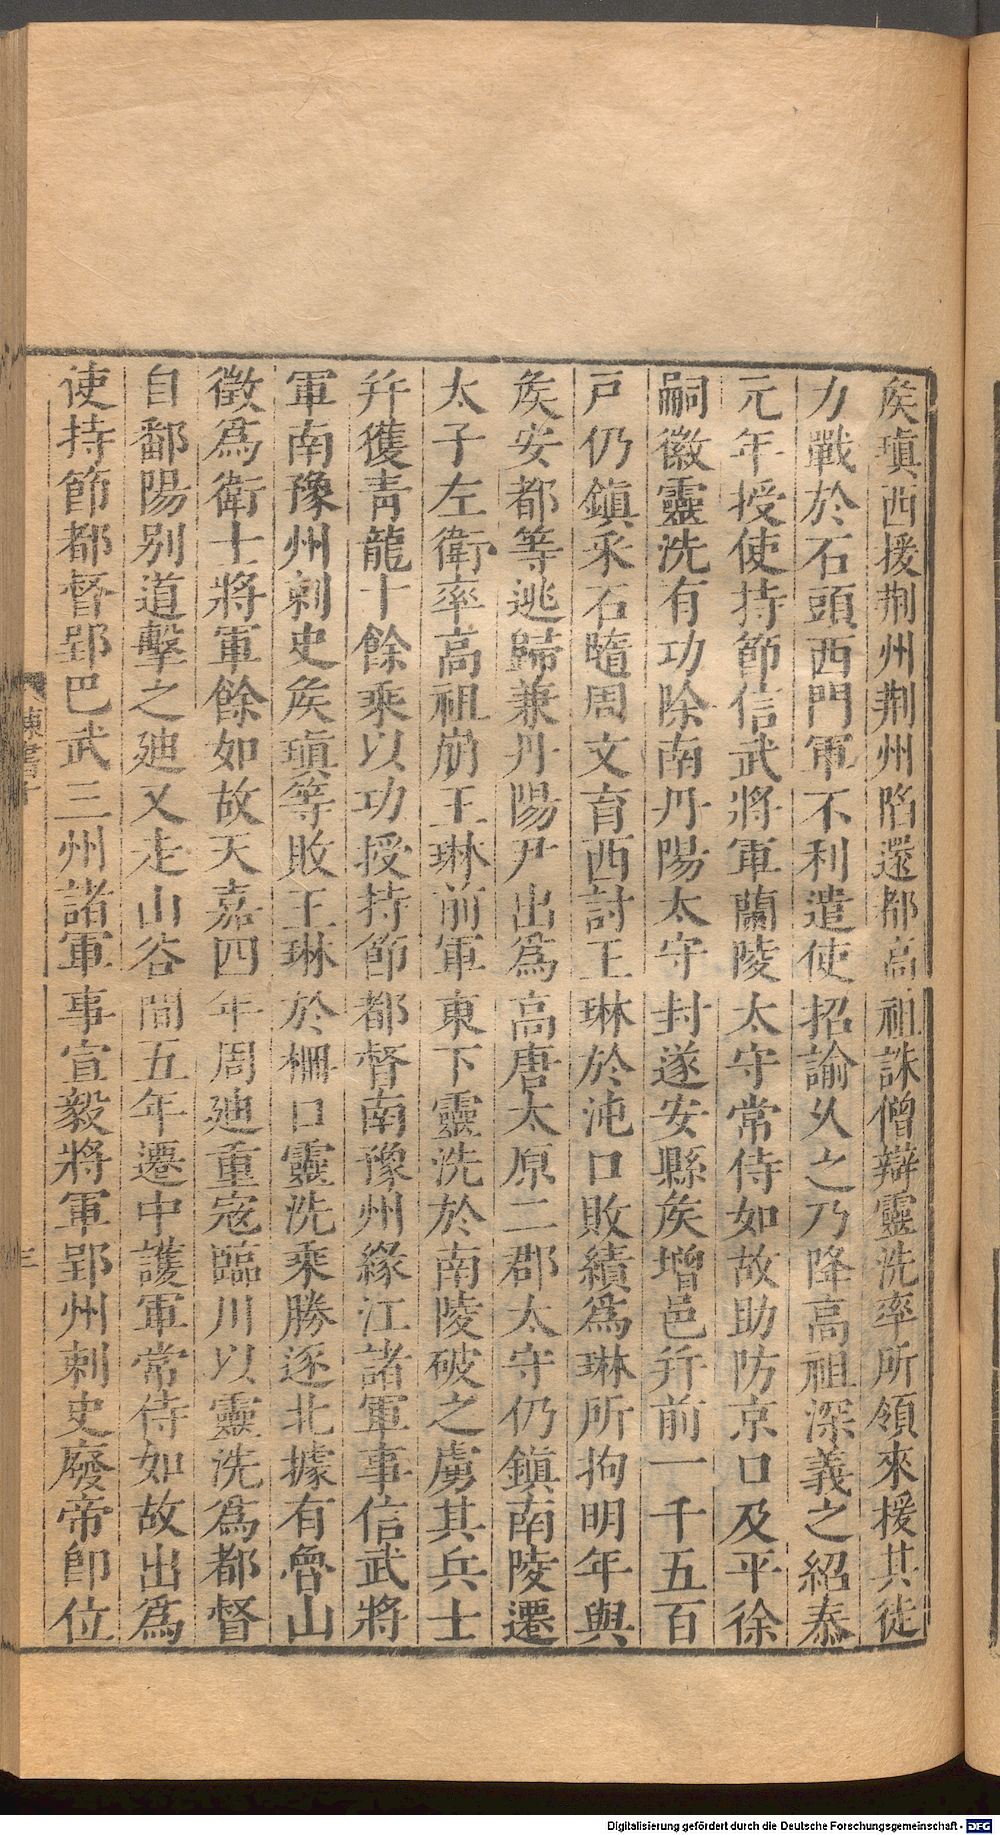 矦瑱西援荆州荆州陷還都高祖誅僧辯靈洗率所領來援其徒
力戰於石頭西門軍不利遣使招諭乆之乃降高祖深義之紹泰
元年授使持節信武將軍蘭陵太守常侍如故助防京口及平徐
嗣徽靈洗有功除南丹陽太守封遂安縣矦增邑幷前一千五百
戸仍鎮采石隨周文育西討王琳於沌口敗績爲琳所拘明年與
矦安都等逃歸兼丹陽尹出爲高唐太原二郡太守仍鎮南陵遷
太子左衛率高祖崩王琳前軍東下靈洗於南陵破之虜其兵士
幷獲青龍十餘乘以功授持節都督南豫州緣江諸軍事信武將
軍南豫州刺史矦瑱等敗王琳於柵口靈洗乘勝逐北據有魯山
徵爲衛士將軍餘如故天嘉四年周迪重寇臨川以靈洗爲都督
自鄱陽别道擊之迪又走山谷間五年遷中護軍常侍如故出爲
使持節都督郢巴武三州諸軍事宣毅將軍郢州刺史廢帝卽位
陳書十
Digitalisierung gefördert durch die Deutsche Forschungsgemeinschaft - DFG